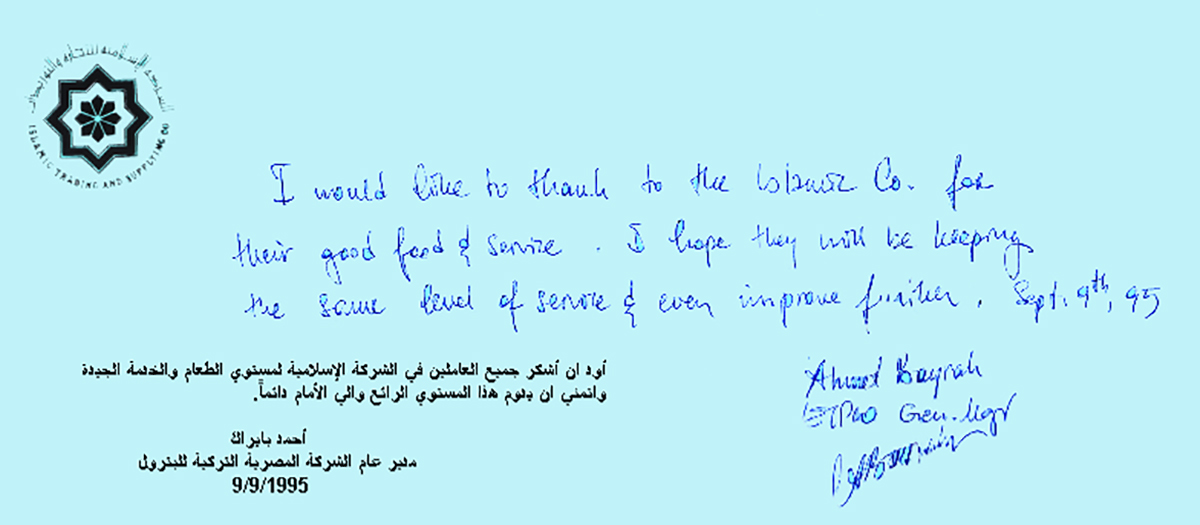 الشركة الإسلامية للتجارة والتوريدات
ISLAMIC TRADING AND SUPPLYING CO
I would like to thank to the Islamic Co. for
their good food & service. I hope they will be keeping
the same level of service & even improve further. Sept. 9th, 95
أود ان أشكر جميع العاملين في الشركة الإسلامية لمستوي الطعام والخدمة الجيدة
واتمني ان يدوم هذا المستوي الرائع والي الأمام دائماً.
أحمد بايراك
مدير عام الشركة المصرية التركية للبترول
9/9/1995
Ahmed Bayrak
Gen. Mgr